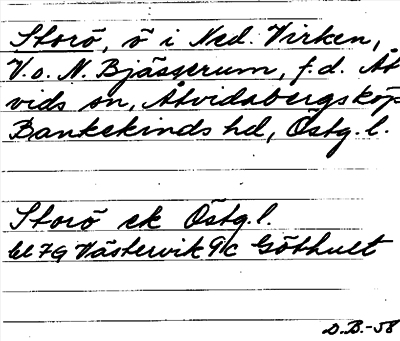 Storö, ö i Ned. Virken,
V. o. N. Bjässerum, f.d. Åt
vids sn, Åtvidabergsköp
Bankekinds hd, Östg. l.
Storö ek Östg. l.
bl 7G Västervik 9/c Göthult
D.B.-58